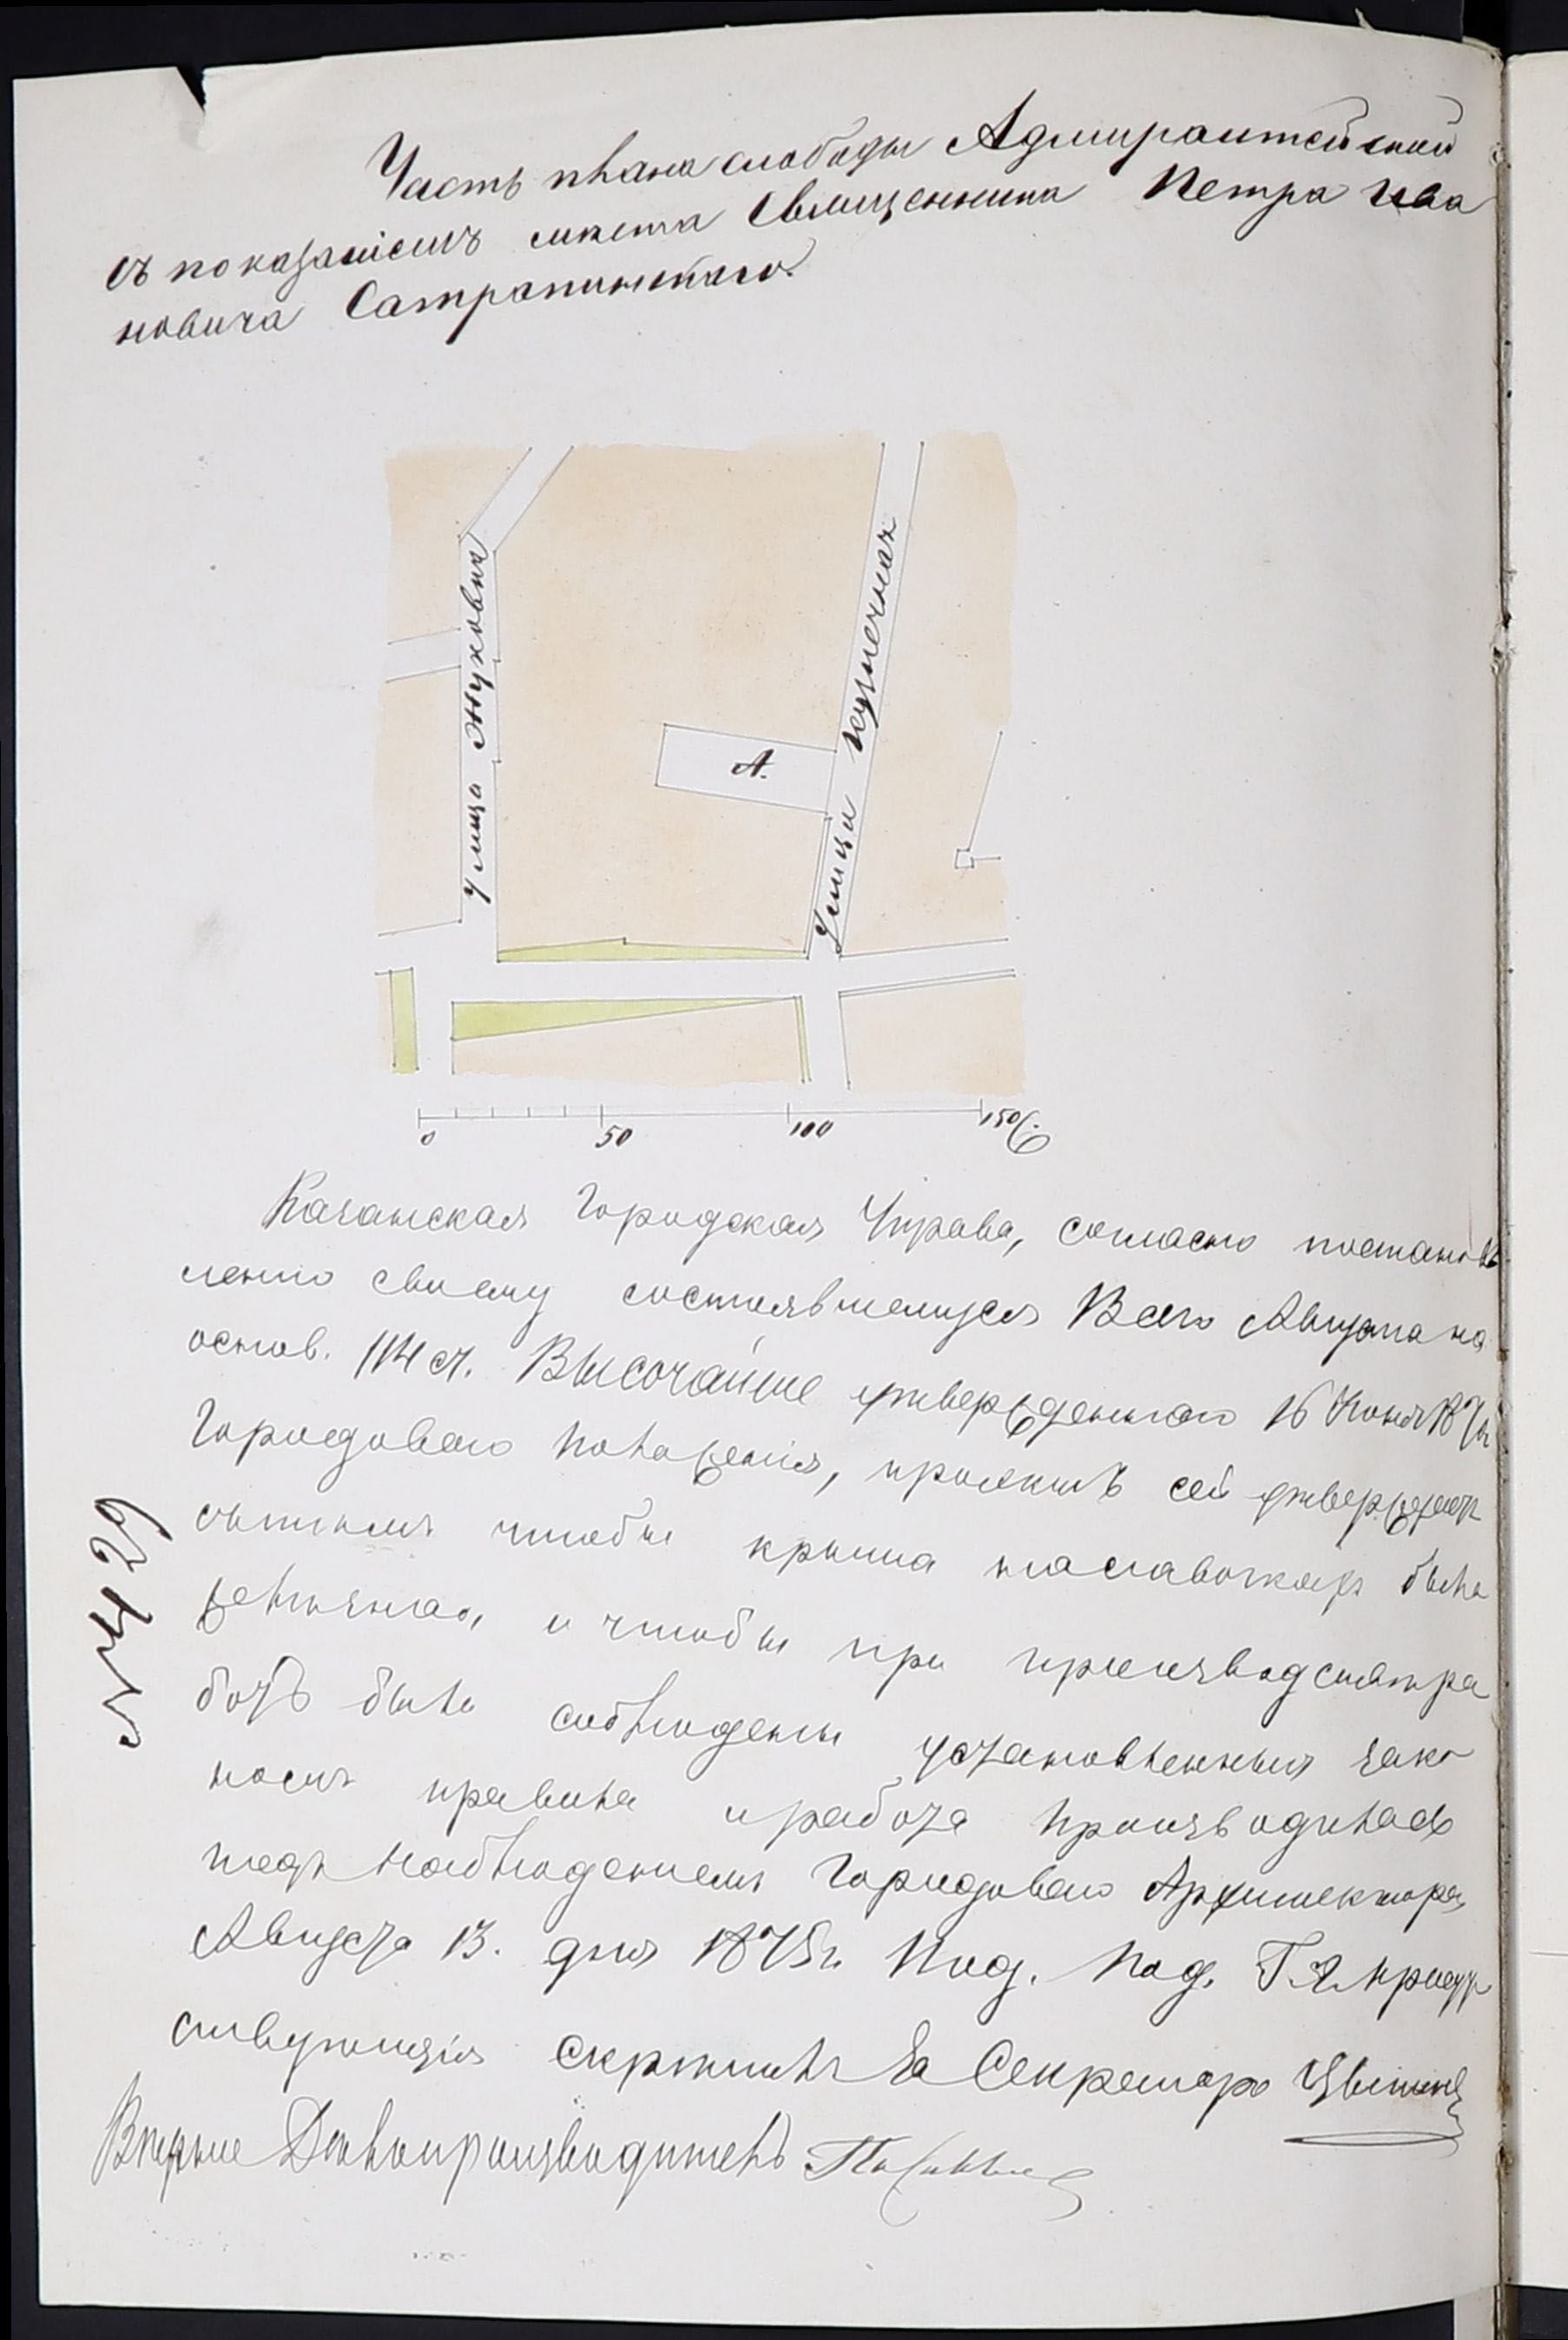 Часть плана слободы Адмиралтейской
съ показаніемъ места Священника Петра Ива
новича Сатрапинскаго.
улица Жуковка
А.
Улица кузнечная
0 50 100 150 С.
Казанская Городская Управа, согласно постанов
лению своему состоявшемуся Августа на
основ. 114 ст. Высочайше утвержденнаго 16 Июня 187
Городоваго Положения, проэктъ сей утверждаетъ
съ темъ чтобы крыша на была
и чтобы при производстве ра
ботъ были соблюдены установленныя зако
номъ правила и работа производилась
подъ наблюдениемъ Городоваго Архитектора,
Августа 13. дня 1875 г. Под. Под. Г.
скрепилъ За Секретаря
№ 429
Делопроизводитель